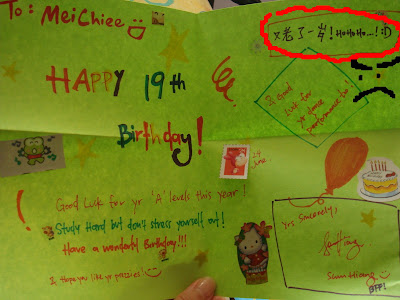 To: MeiChiee
又老了一岁! HoHoHo...! :D
HAPPY 19th
Birthday!
& Good
luck for
yr dance
performance too!
24
June
Good Luck for yr 'A' levels this year!
Study Hard but don't stress yourself out!
Have a wonderful Birthday!!!
I hope you like yr pressies!
yrs Sincerely,
BFF!